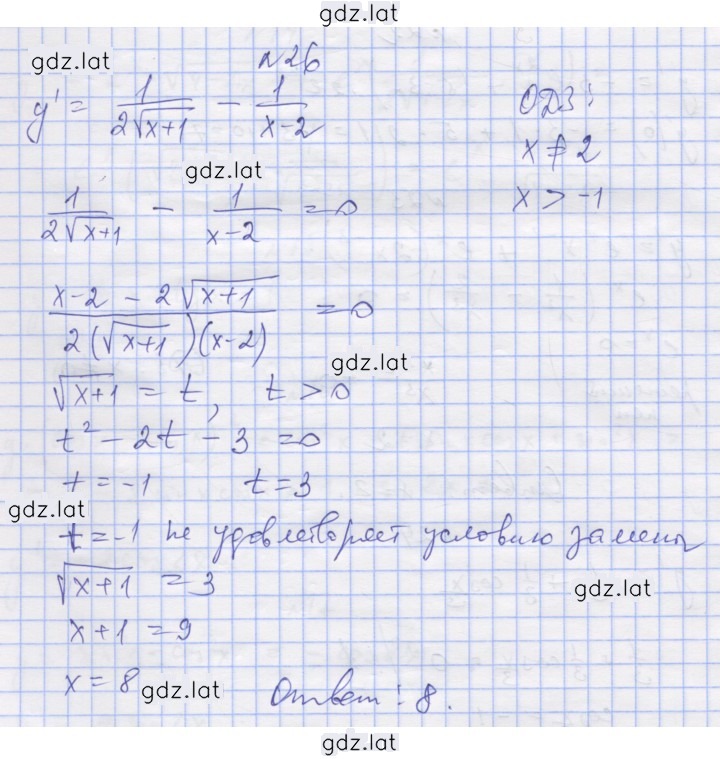 gdz.lat
gdz.lat
N26
y' = 1/(2√(x+1)) - 1/(x-2)
ОДЗ:
x ≠ 2
gdz.lat
x > -1
1/(2√(x+1)) - 1/(x-2) = 0
(x-2 - 2√(x+1))/(2(√(x+1))(x-2)) = 0
gdz.lat
√(x+1) = t, t > 0
t² - 2t - 3 = 0
t = -1 t = 3
gdz.lat
t = -1 не удовлетворяет условию замены
√(x+1) = 3
gdz.lat
x+1 = 9
x = 8
gdz.lat
Ответ: 8.
gdz.lat